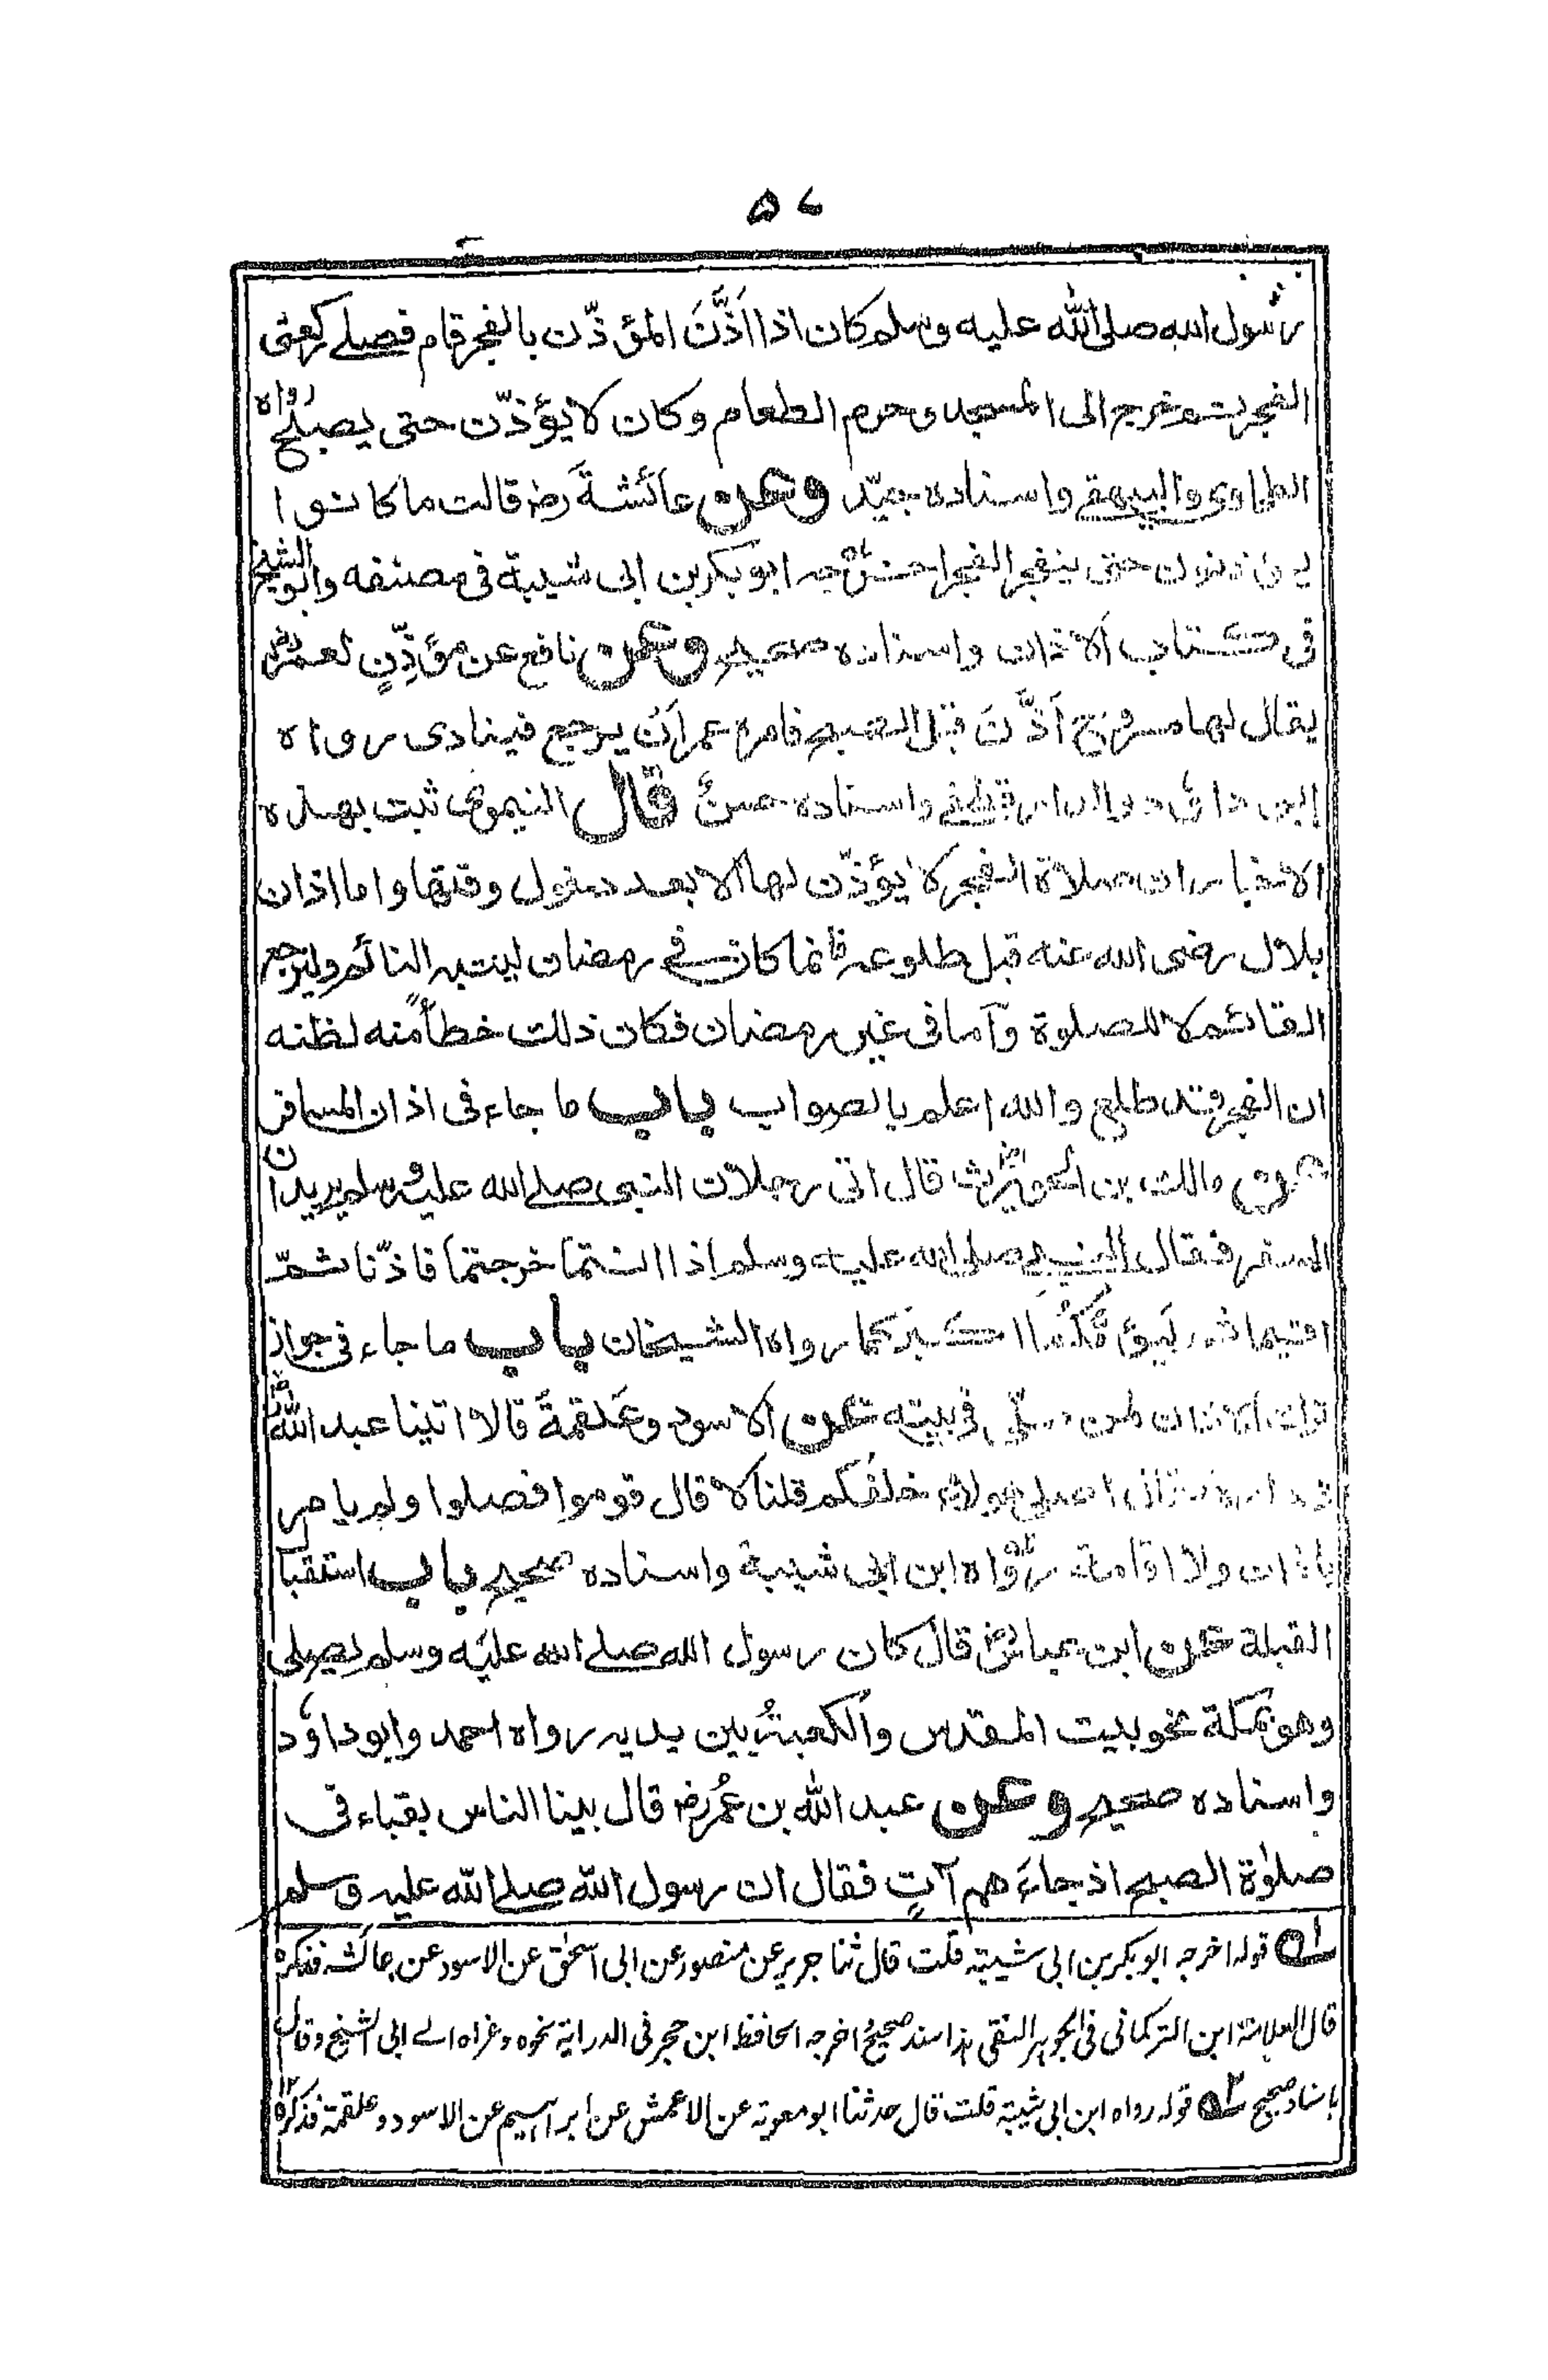 ۵۷
رسول الله صلى الله عليه وسلم كان اذا اَذَّنَ المؤذّن بالفجر قام فصلے ركعتى
الفجر ثم خرج الى المسجد وحرم الطعام وكان لا يؤذّن حتى يصبح رواه
الطحاوى والبيهقے واسناده جيّد وعن عائشةَ رض قالت ما كانوا
يؤذنون حتى ينفجر الفجر اخرجه ابو بكر بن ابى شيبة فى مصنفه وابو الشيخ
فى كتاب الاذان واسناده صحيح وعن نافع عن مؤذِّنٍ لعمر رض
يقال لها مسروح اَذَّنَ قبل الصبح فامره عمر اَنْ يرجع فينادى رواه
ابو داؤد والدارقطنے واسناده حسن قال النيموى ثبت بهذه
الاخبار ان صلاة الفجر لا يؤذّن لها الا بعد دخول وقتها واما اذان
بلال رضى الله عنه قبل طلوعه فانما كان فے رمضان لينتبه النائم وليرجع
القائم لا للصلوة وآما فى غير رمضان فكان ذلك خطأً منه لظنه
ان الفجر قد طلع والله اعلم بالصواب باب ما جاء فى اذان المسافر
عن مالك بن الحويرث رض قال اتى رجلان النبى صلے الله عليه وسلم يريدان
السفر فقال النبى صلى الله عليه وسلم اذا انتما خرجتما فاذّنا ثمّ
اقيما ثم ليؤمّكُما اكبركما رواه الشيخان باب ما جاء فى جواز
ترك الاذان لمن صلّى فى بيته عن الاسود وعَلقمةَ قالا اتينا عبد الله رض
فى داره فقال اصلى هولاء خلفكم قلنا لا قال قوموا فصلوا ولم يامر
باذان ولا اقامة رواه ابن ابى شيبة واسناده صحيح باب استقبال
القبلة عن ابن عباس رض قال كان رسول الله صلے الله عليه وسلم يصلى
وهو بمكة نحو بيت المقدس والكعبةُ بين يديه رواه احمد وابو داؤد
واسناده صحيح وعن عبد الله بن عُمر رض قال بينا الناس بقباء فى
صلوٰة الصبح اذ جاءَهم آتٍ فقال ان رسول الله صلے الله عليه وسلم
۱؎ قوله اخرجه ابو بكر بن ابى شيبة قلت قال ثنا جرير عن منصور عن ابى اسحٰق عن الاسود عن عائشة فذكره
قال العلامة ابن التركمانى فى الجوهر النقى هذا سند صحيح اخرجه الحافظ ابن حجر فى الدراية نحوه وعزاه الے ابى الشيخ وقال
باسناد صحيح ۲؎ قوله رواه ابن ابى شيبة قلت قال حدثنا ابو معوية عن الاعمش عن ابراهيم عن الاسود وعلقمة فذكره ۱۲